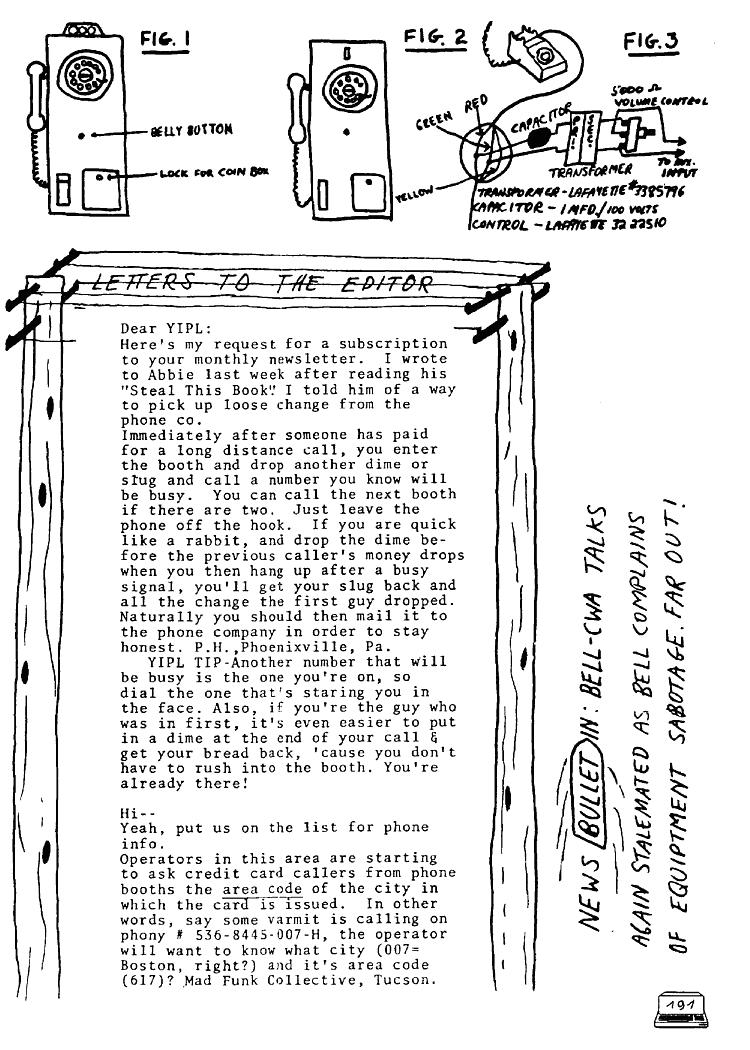 FIG. 1
FIG. 2
FIG. 3
BELLY BUTTON
LOCK FOR COIN BOX
GREEN
RED
YELLOW
CAPACITOR
5000 Ω
VOLUME CONTROL
TRANSFORMER
INPUT
TRANSFORMER-LAFAYETTE #3385796
CAPACITOR - 1 MFD./100 VOLTS
CONTROL - LAFAYETTE 32 22510
LETTERS TO THE EDITOR
Dear YIPL:
Here's my request for a subscription
to your monthly newsletter. I wrote
to Abbie last week after reading his
"Steal This Book". I told him of a way
to pick up loose change from the
phone co.
Immediately after someone has paid
for a long distance call, you enter
the booth and drop another dime or
slug and call a number you know will
be busy. You can call the next booth
if there are two. Just leave the
phone off the hook. If you are quick
like a rabbit, and drop the dime be-
fore the previous caller's money drops
when you then hang up after a busy
signal, you'll get your slug back and
all the change the first guy dropped.
Naturally you should then mail it to
the phone company in order to stay
honest. P.H.,Phoenixville, Pa.
YIPL TIP-Another number that will
be busy is the one you're on, so
dial the one that's staring you in
the face. Also, if you're the guy who
was in first, it's even easier to put
in a dime at the end of your call &
get your bread back, 'cause you don't
have to rush into the booth. You're
already there!
Hi--
Yeah, put us on the list for phone
info.
Operators in this area are starting
to ask credit card callers from phone
booths the area code of the city in
which the card is issued. In other
words, say some varmit is calling on
phony # 536-8445-007-H, the operator
will want to know what city (007=
Boston, right?) and it's area code
(617)? Mad Funk Collective, Tucson.
NEWS BULLETIN: BELL-CWA TALKS
AGAIN STALEMATED AS BELL COMPLAINS
OF EQUIPTMENT SABOTAGE. FAR OUT!
191